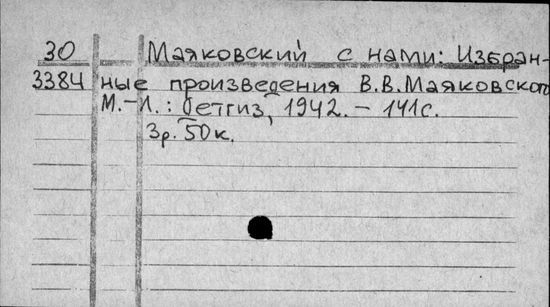 30 Маяковский с нами: Избран-
3384 ные произведения В.В.Маяковского
М.-Л.: Детгиз, 1942. - 141с.
3р. 50к.